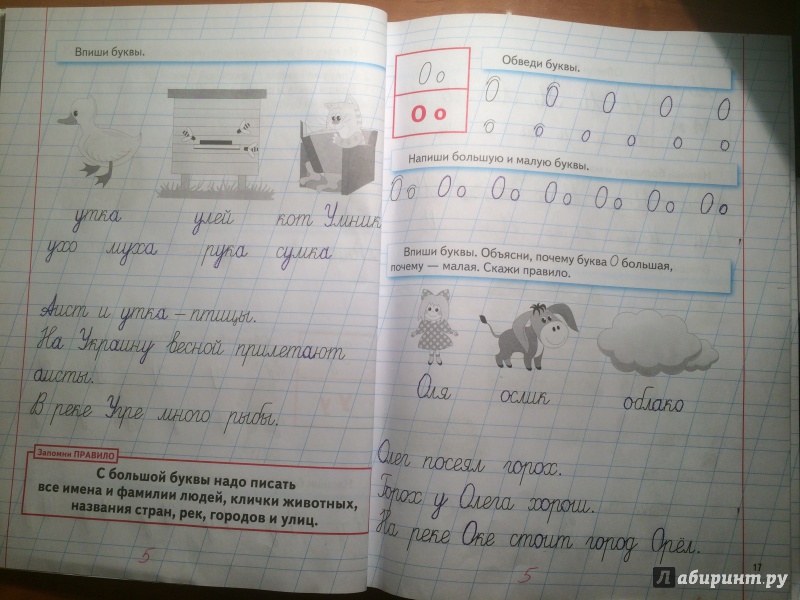 Впиши буквы.
утка улей кот Умник
ухо муха рука сумка
Аист и утка – птицы.
На Украину весной прилетают
аисты.
В реке Угре много рыбы.
Запомни ПРАВИЛО
С большой буквы надо писать
все имена и фамилии людей, клички животных,
названия стран, рек, городов и улиц.
5
О о
О о
Обведи буквы.
О О О О О
о о о о о о
Напиши большую и малую буквы.
О о О о О о О о О о О о О о
Впиши буквы. Объясни, почему буква О большая,
почему — малая. Скажи правило.
Оля ослик облако
Олег посеял горох.
Горох у Олега хорош.
На реке Оке стоит город Орёл.
5
17
Лабиринт.ру